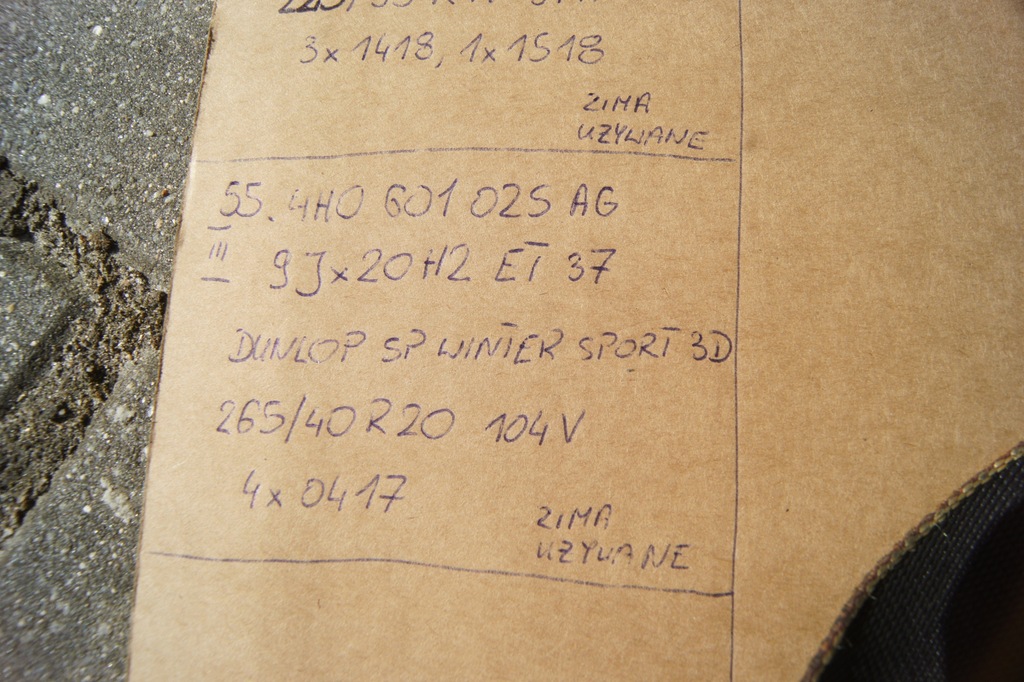 3x1418, 1x1518
ZIMA
UŻYWANE
55. 4H0 601 025 AG
III 9Jx20H2 ET 37
DUNLOP SP WINTER SPORT 3D
265/40 R20 104V
4x0417
ZIMA
UŻYWANE